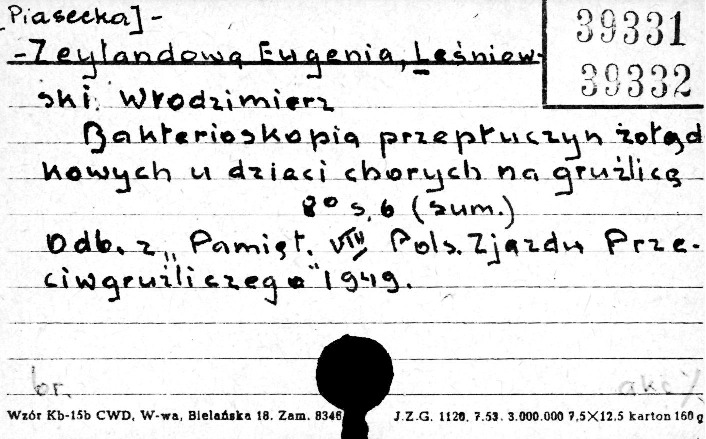 [Piasecka]-
39331
-Zeylandową Eugenia, Leśniew-
39332
ski Włodzimierz
Bakterioskopia przepłuczyn żołąd
kowych u dzieci chorych na gruźlicę
8° s. 6 (sum.)
Odb. z „Pamięt. VIII Pols. Zjazdu Prze-
ciwgruźliczego" 1949.
br.
akc
Wzór Kb-15b CWD, W-wa, Bielańska 18. Zam. 8346
J.Z.G. 1120, 7.53. 3.000.000 7,5×12,5 karton 160 g